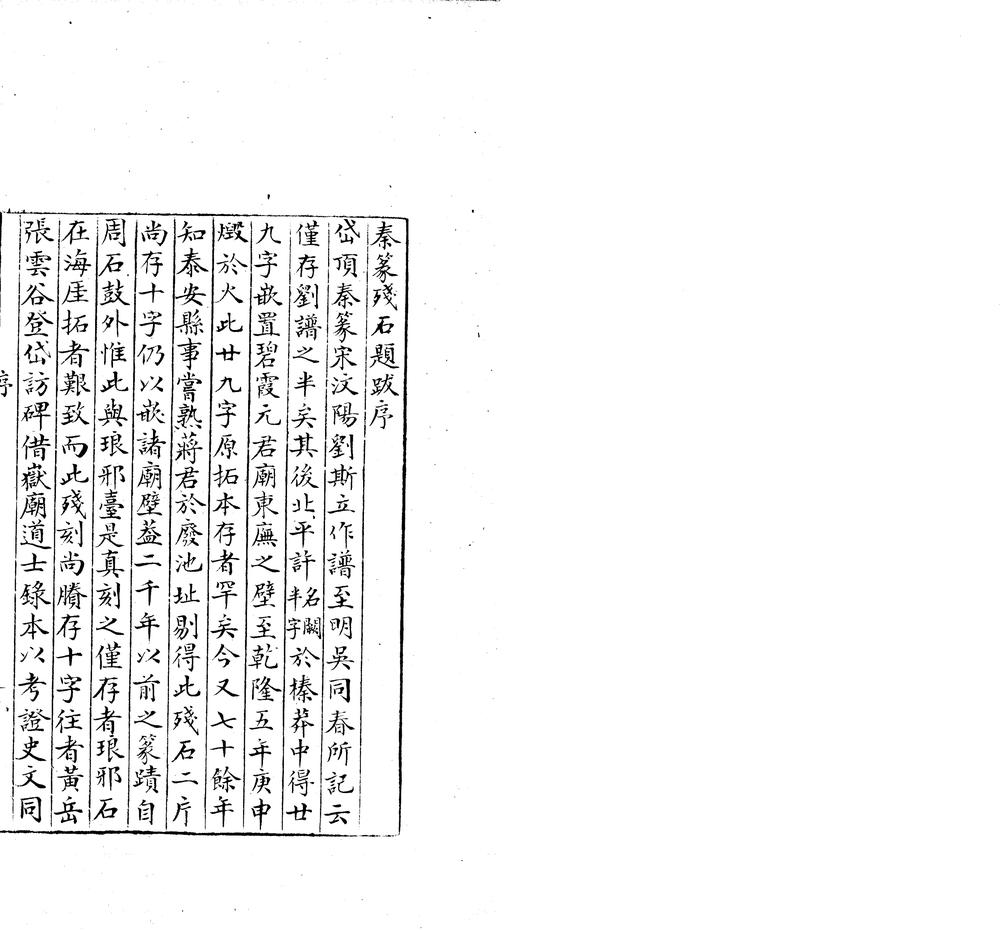 秦篆殘石題跋序
岱頂秦篆宋汶陽劉斯立作譜至明吳同春所記云
僅存劉譜之半矣其後北平許名闕半字於榛莽中得廿
九字嵌置碧霞元君廟東廡之壁至乾隆五年庚申
燬於火此廿九字原拓本存者罕矣今又七十餘年
知泰安縣事嘗熟蔣君於廢池址剔得此殘石二片
尚存十字仍以嵌諸廟壁葢二千年以前之篆蹟自
周石鼓外惟此與琅邪臺是真刻之僅存者琅邪石
在海厓拓者艱致而此殘刻尚賸存十字往者黃岳
張雲谷登岱訪碑借嶽廟道士錄本以考證史文同
序